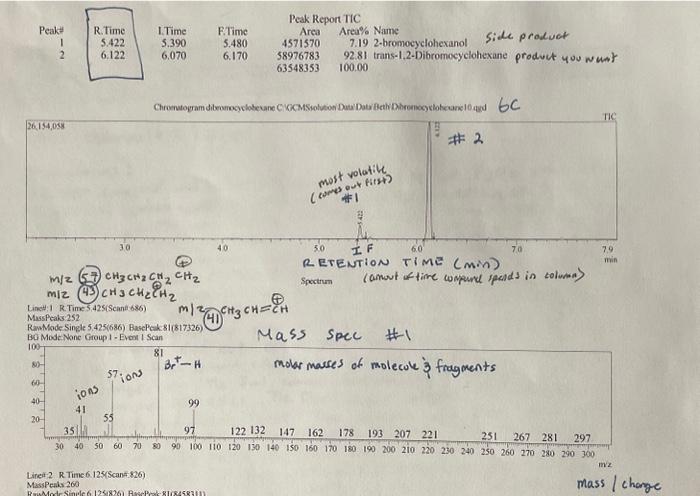 Peak Report TIC
Peak# R.Time I.Time F.Time Area Area% Name
1 5.422 5.390 5.480 4571570 7.19 2-bromocyclohexanol side product
2 6.122 6.070 6.170 58976783 92.81 trans-1,2-Dibromocyclohexane product you want
63548353 100.00
Chromatogram dibromocyclohexane C:\GCMSsolution\Data\Data\Beth\Dibromocyclohexane10.qgd GC
26,154,058 TIC
6.122
# 2
most volatile
(comes out first)
#1
5.422
3.0 4.0 5.0 I F 6.0 7.0 7.9
min
RETENTION TIME (min)
Spectrum (amout of time compound spends in column)
m/z 57 CH3CH2CH2CH2 ⊕
m/z 43 CH3CH2CH2 ⊕
m/z 41 CH3CH=CH ⊕
Line#:1 R.Time:5.425(Scan#:686)
MassPeaks:252
RawMode:Single 5.425(686) BasePeak:81(817326)
BG Mode:None Group 1 - Event 1 Scan
Mass Spec #1
molar masses of molecule & fragments
100
80
60
40
20
81
Br+-H
57 ions
ions
41
55
35
99
97 122 132 147 162 178 193 207 221 251 267 281 297
30 40 50 60 70 80 90 100 110 120 130 140 150 160 170 180 190 200 210 220 230 240 250 260 270 280 290 300
m/z
mass / charge
Line#:2 R.Time:6.125(Scan#:826)
MassPeaks:260
RawMode:Single 6.125(826) BasePeak:81(8458311)